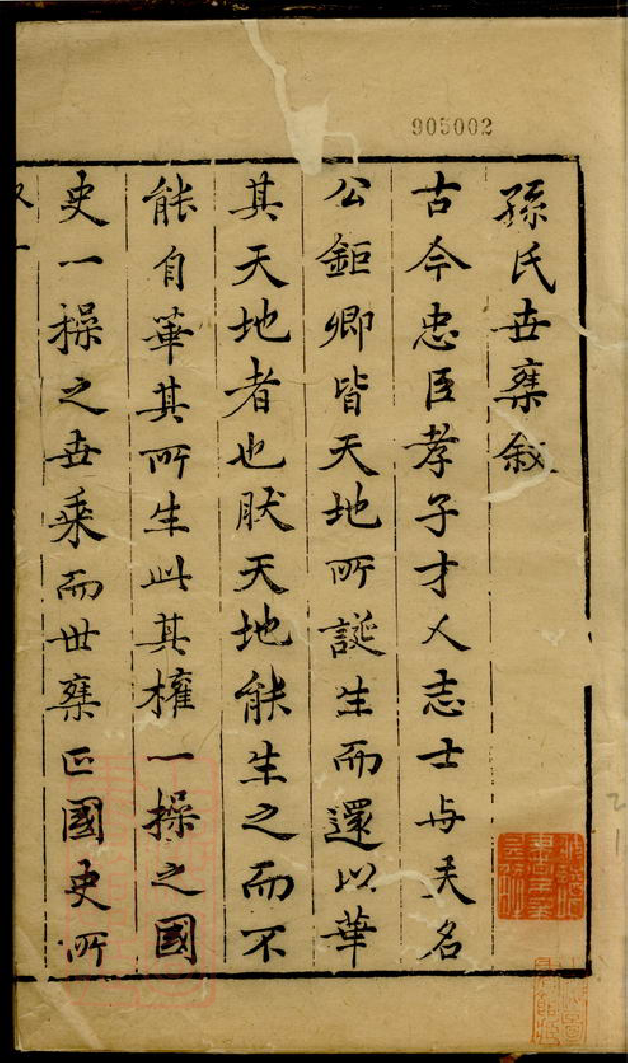 905002
孫氏世椉叙
古今忠臣孝子才人志士与夫名
公鉅卿皆天地所誕生而還以華
其天地者也肰天地能生之而不
能自華其所生此其權一操之國
史一操之世乘而世椉匹國史所